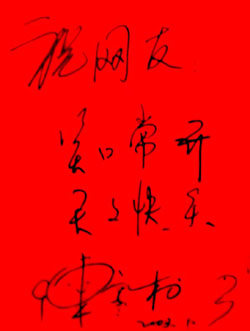 祝网友
笑口常开
天天快乐
2003.1.